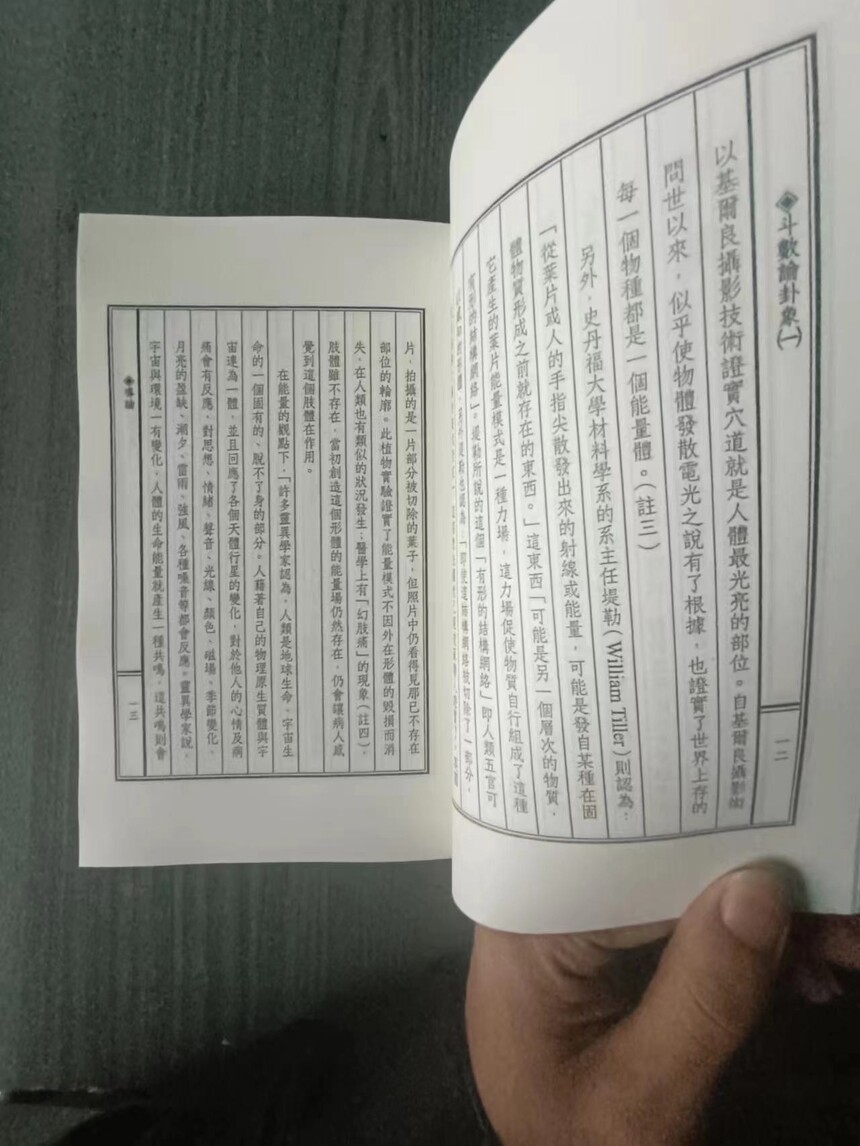 ◈斗數論卦象(一)
一二
以基爾良攝影技術證實穴道就是人體最光亮的部位。自基爾良攝影術
問世以來，似乎使物體發散電光之說有了根據，也證實了世界上存的
每一個物種都是一個能量體。（註三）
另外，史丹福大學材料學系的系主任堤勒（William Tiller）則認為：
「從葉片或人的手指尖散發出來的射線或能量，可能是發自某種在固
體物質形成之前就存在的東西。」這東西「可能是另一個層次的物質，
它產生的葉片能量模式是一種力場，這力場促使物質自行組成了這種
有形的結構網絡」。堤勒所說的這個「有形的結構網絡」即人類五官可
「即使這結構網絡被切除了一部分，
片，拍攝的是一片部分被切除的葉子，但照片中仍看得見那已不存在
部位的輪廓。此植物實驗證實了能量模式不因外在形體的毀損而消
失，在人類也有類似的狀況發生；醫學上有「幻肢痛」的現象（註四），
肢體雖不存在，當初創造這個形體的能量場仍然存在，仍會讓病人感
覺到這個肢體在作用。
在能量的觀點下，「許多靈異學家認為，人類是地球生命、宇宙生
命的一個固有的、脫不了身的部分。人藉著自己的物理原生質體與宇
宙連為一體，並且回應了各個天體行星的變化，對於他人的心情及病
痛會有反應，對思想、情緒、聲音、光線、顏色、磁場、季節變化、
月亮的盈缺、潮夕、雷雨、強風、各種噪音等都會反應。靈異學家說，
宇宙與環境一有變化，人體的生命能量就產生一種共鳴，這共鳴則會
◈導論
一三